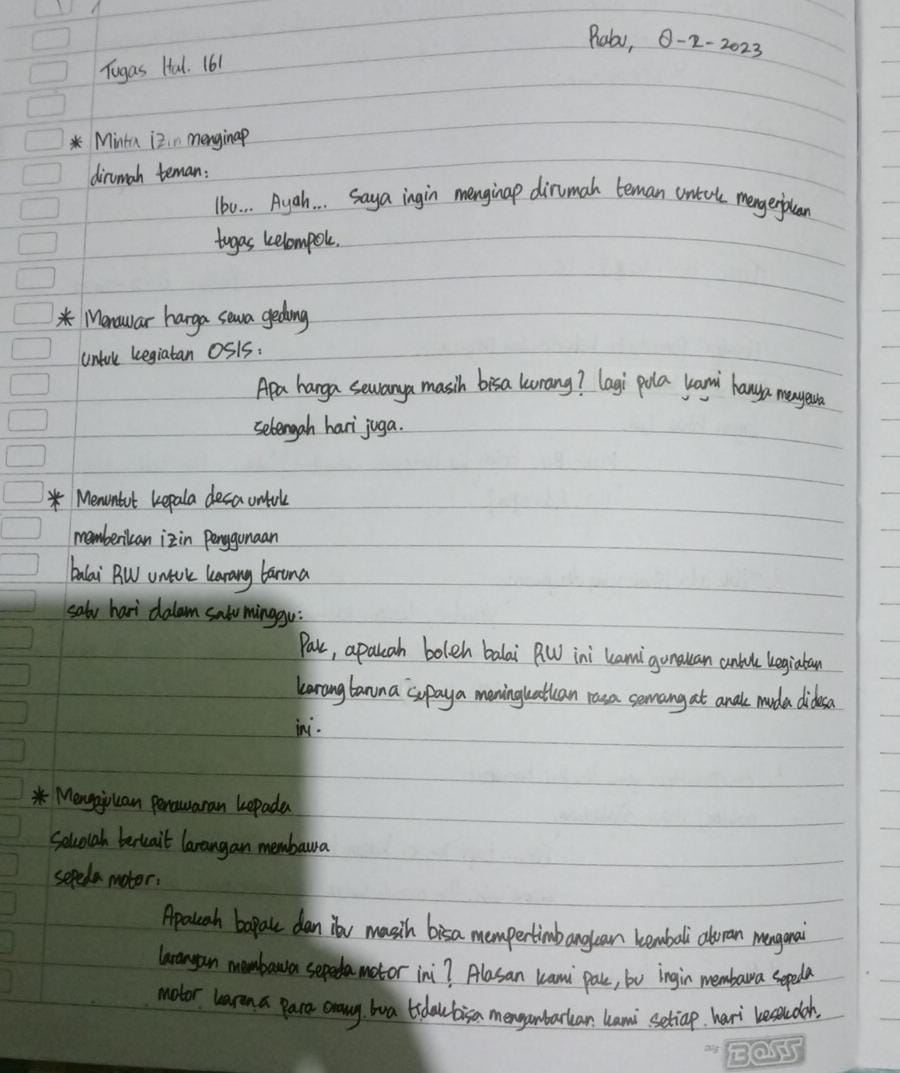 Rabu, 8-2-2023
Tugas Hal. 161
* Minta izin menginap
dirumah teman:
Ibu... Ayah... saya ingin menginap dirumah teman untuk mengerjakan
tugas kelompok.
* Menawar harga sewa gedung
untuk kegiatan OSIS:
Apa harga sewanya masih bisa kurang? lagi pula kami hanya menyewa
setengah hari juga.
* Menuntut kepala desa untuk
memberikan izin Penggunaan
balai RW untuk karang taruna
satu hari dalam satu minggu:
Pak, apakah boleh balai RW ini kami gunakan untuk kegiatan
karang taruna supaya meningkatkan rasa semangat anak muda didesa
ini.
* Mengajukan penawaran kepada
Sekolah terkait larangan membawa
sepeda motor:
Apakah bapak dan ibu masih bisa mempertimbangkan kembali aturan mengenai
larangan membawa sepeda motor ini? Alasan kami pak, bu ingin membawa sepeda
motor karena para orang tua tidak bisa mengantarkan kami setiap hari kesekolah.
BOSS